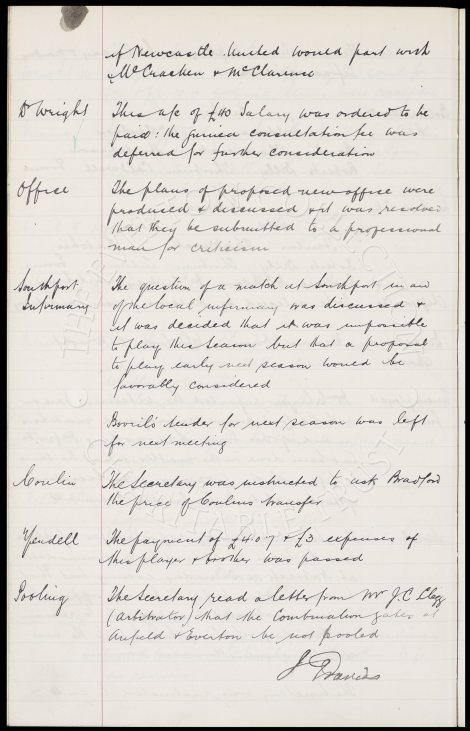 if Newcastle United would part with
McCracken & McClarence
Dr Wright This a/c of £40 Salary was ordered to be
paid: the guinea consultation fee was
deferred for further consideration
Office The plans of proposed new office were
produced & discussed & it was resolved
that they be submitted to a professional
man for criticism
Southport The question of a match at Southport in aid
Infirmary of the local infirmary was discussed &
it was decided that it was impossible
to play this season but that a proposal
to play early next season would be
favorably considered
Bovril's tender for next season was left
for next meeting
Conlin The Secretary was instructed to ask Bradford
the price of Conlins transfer
Yendell The payment of £40 & £3 expenses of
this player & brother was passed
Pooling The Secretary read a letter from Mr J C Clegg
(Arbitrator) that the Combination gates at
Anfield & Everton be not pooled